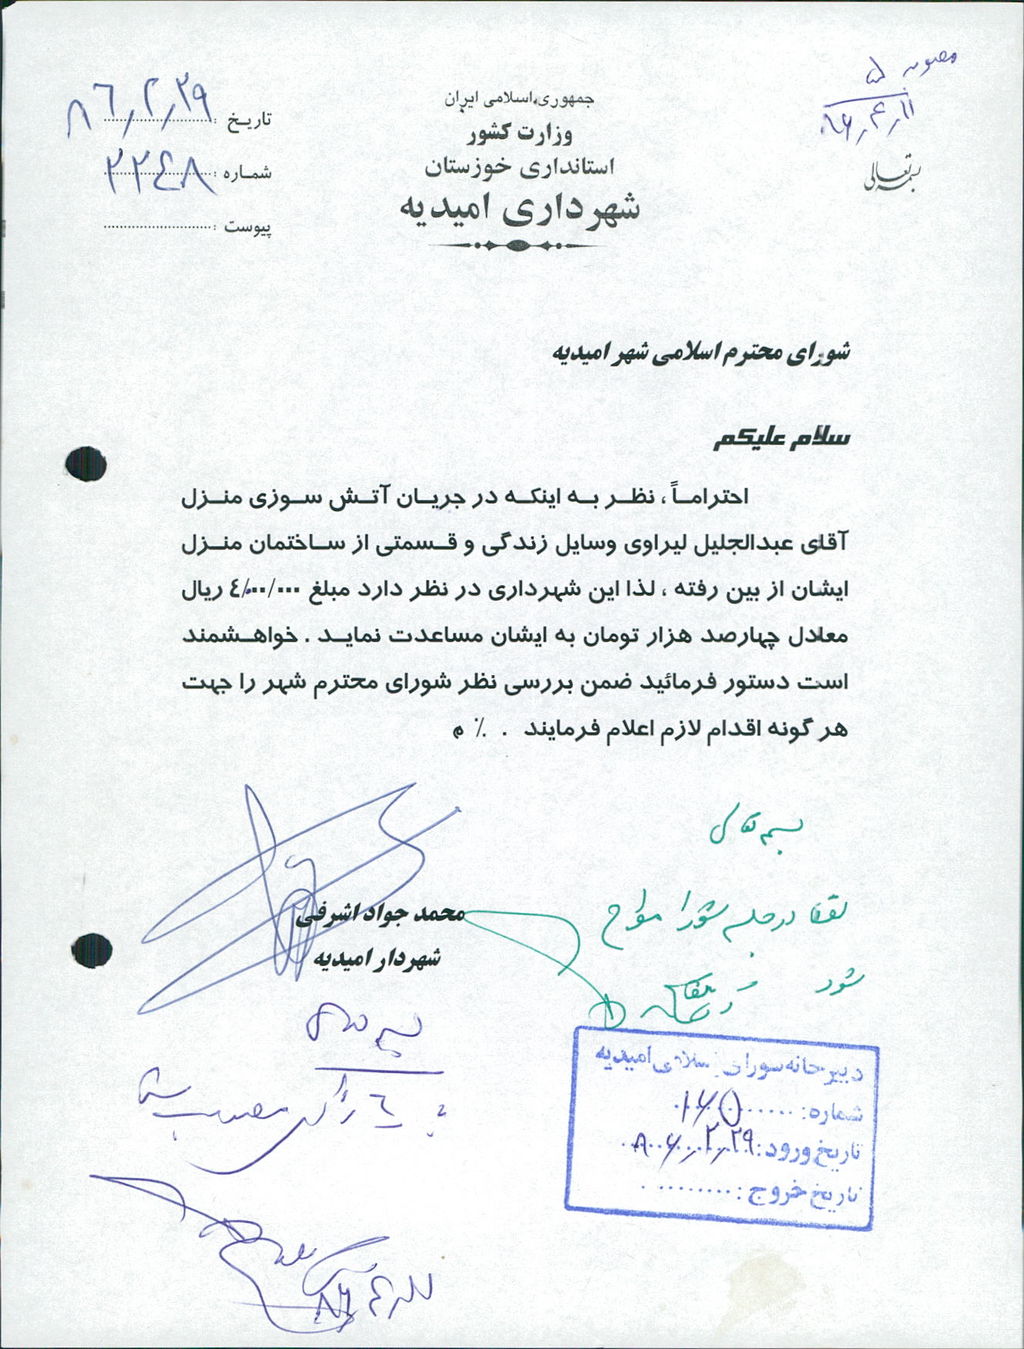 مصوبه ۵
۸۶/۴/۱۱
بسمه تعالی
جمهوری اسلامی ایران
وزارت کشور
استانداری خوزستان
شهرداری امیدیه
تاریخ : ۸۶/۲/۲۹
شماره : ۲۲۴۸
پیوست :
شورای محترم اسلامی شهر امیدیه
سلام علیکم
احتراماً ، نظر به اینکه در جریان آتش سوزی منزل
آقای عبدالجلیل لیراوی وسایل زندگی و قسمتی از ساختمان منزل
ایشان از بین رفته ، لذا این شهرداری در نظر دارد مبلغ ٤/۰۰۰/۰۰۰ ریال
معادل چهارصد هزار تومان به ایشان مساعدت نماید . خواهشمند
است دستور فرمائید ضمن بررسی نظر شورای محترم شهر را جهت
هر گونه اقدام لازم اعلام فرمایند . ٪ م
محمد جواد اشرفی
شهردار امیدیه
بسمه تعالی
لطفا در جلسه شورا مطرح
شود
دبیرخانه شورای اسلامی امیدیه
شماره: ۱۶۵
تاریخ ورود: ۸۶/۲/۲۹
تاریخ خروج:
بسمه تعالی
با ٤ رأی تصویب شد